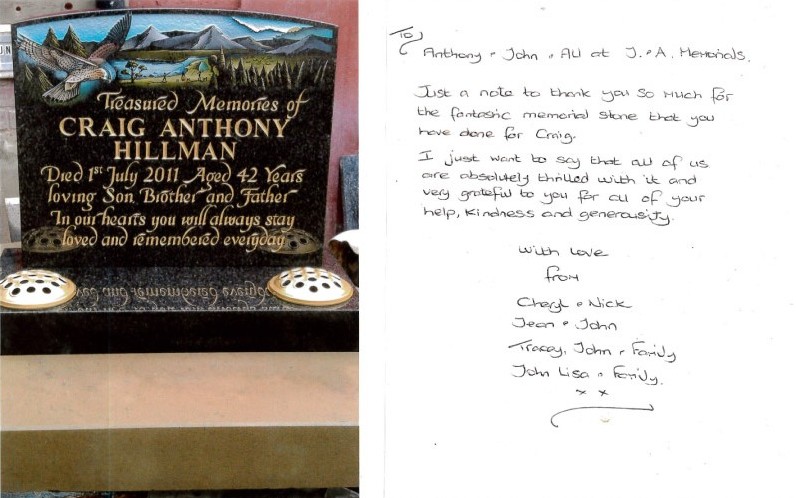 Treasured Memories of
CRAIG ANTHONY
HILLMAN
Died 1st July 2011 Aged 42 Years
loving Son, Brother and Father
In our hearts you will always stay
loved and remembered everyday
To
Anthony & John & All at J. & A. Memorials.
Just a note to thank you so much for
the fantastic memorial stone that you
have done for Craig.
I just want to say that all of us
are absolutely thrilled with it and
very grateful to you for all of your
help, kindness and generousity.
With love
from
Cheryl & Nick
Jean & John
Tracey, John & Family
John Lisa & Family.
x x